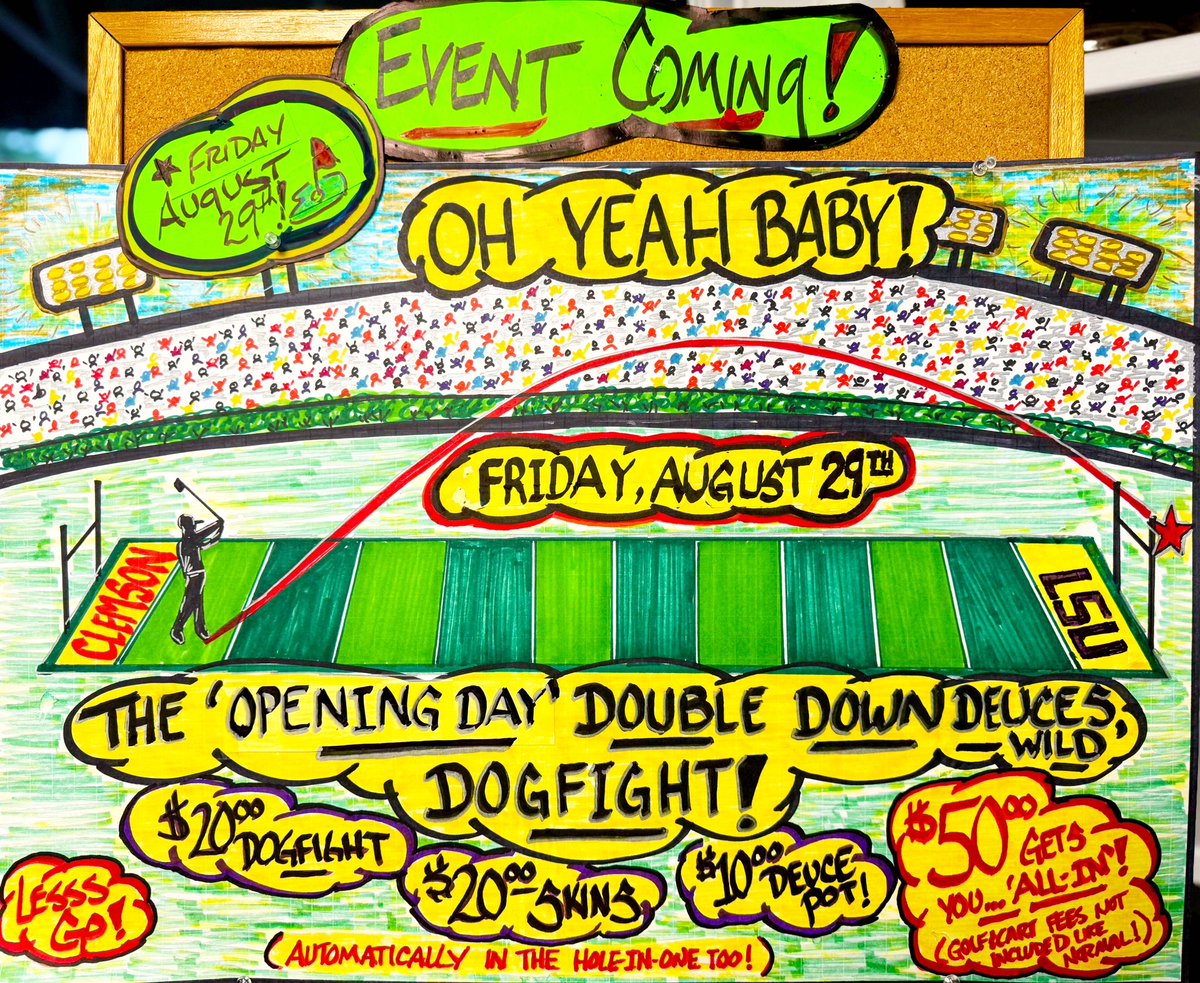 EVENT COMING!
★ FRIDAY
AUGUST
29th!
OH YEAH BABY!
FRIDAY, AUGUST 29TH
CLEMSON
LSU
THE 'OPENING DAY' DOUBLE DOWN DEUCES,
WILD
DOGFIGHT!
$20.00
DOGFIGHT
$20.00 SKINS
$10.00 DEUCE
POT!
$50.00
GETS
YOU... 'ALL-IN'!
(GOLF & CART FEES NOT
INCLUDED LIKE
NORMAL!)
LESSS
GO!
(AUTOMATICALLY IN THE HOLE-IN-ONE TOO!)